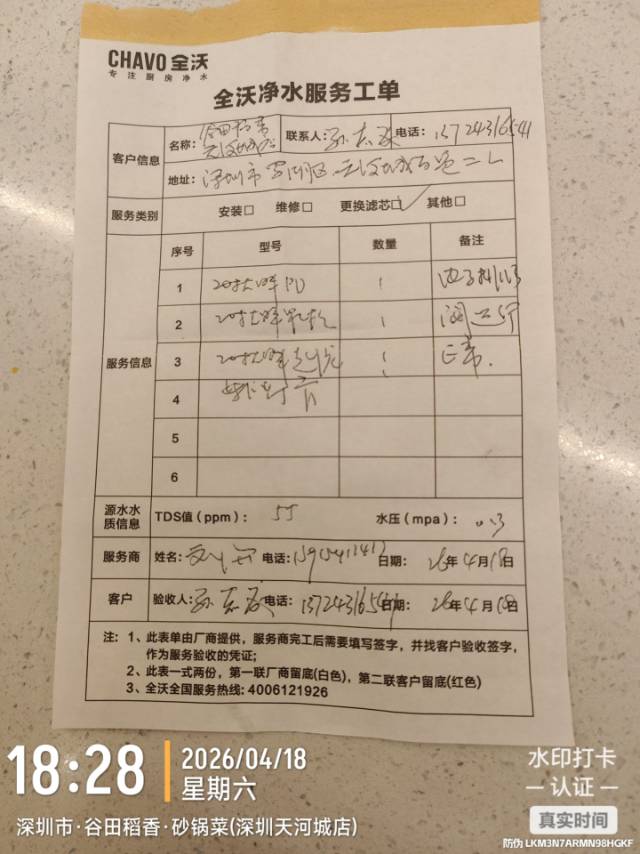 CHAVO 全沃
专注厨房净水
全沃净水服务工单
客户信息
名称: 谷田稻香
联系人: 孙 电话: 13724316541
地址: 深圳市罗湖区 二L
服务类别 安装□ 维修□ 更换滤芯☑ 其他□
服务信息
序号 型号 数量 备注
1 20寸大胖PP 1
2 20寸大胖 1
3 20寸大胖 1 正常.
4
5
6
源水水质信息 TDS值（ppm）: 55 水压（mpa）: 0.3
服务商 姓名: 电话: 日期: 26年4月18日
客户 验收人: 孙 电话: 13724316541 日期: 26年4月18日
注: 1、此表单由厂商提供，服务商完工后需要填写签字，并找客户验收签字，
作为服务验收的凭证;
2、此表一式两份，第一联厂商留底(白色)，第二联客户留底(红色)
3、全沃全国服务热线: 4006121926
18:28
2026/04/18
星期六
深圳市·谷田稻香·砂锅菜(深圳天河城店)
水印打卡
认证
真实时间
防伪 LKM3N7ARMN98HGKF